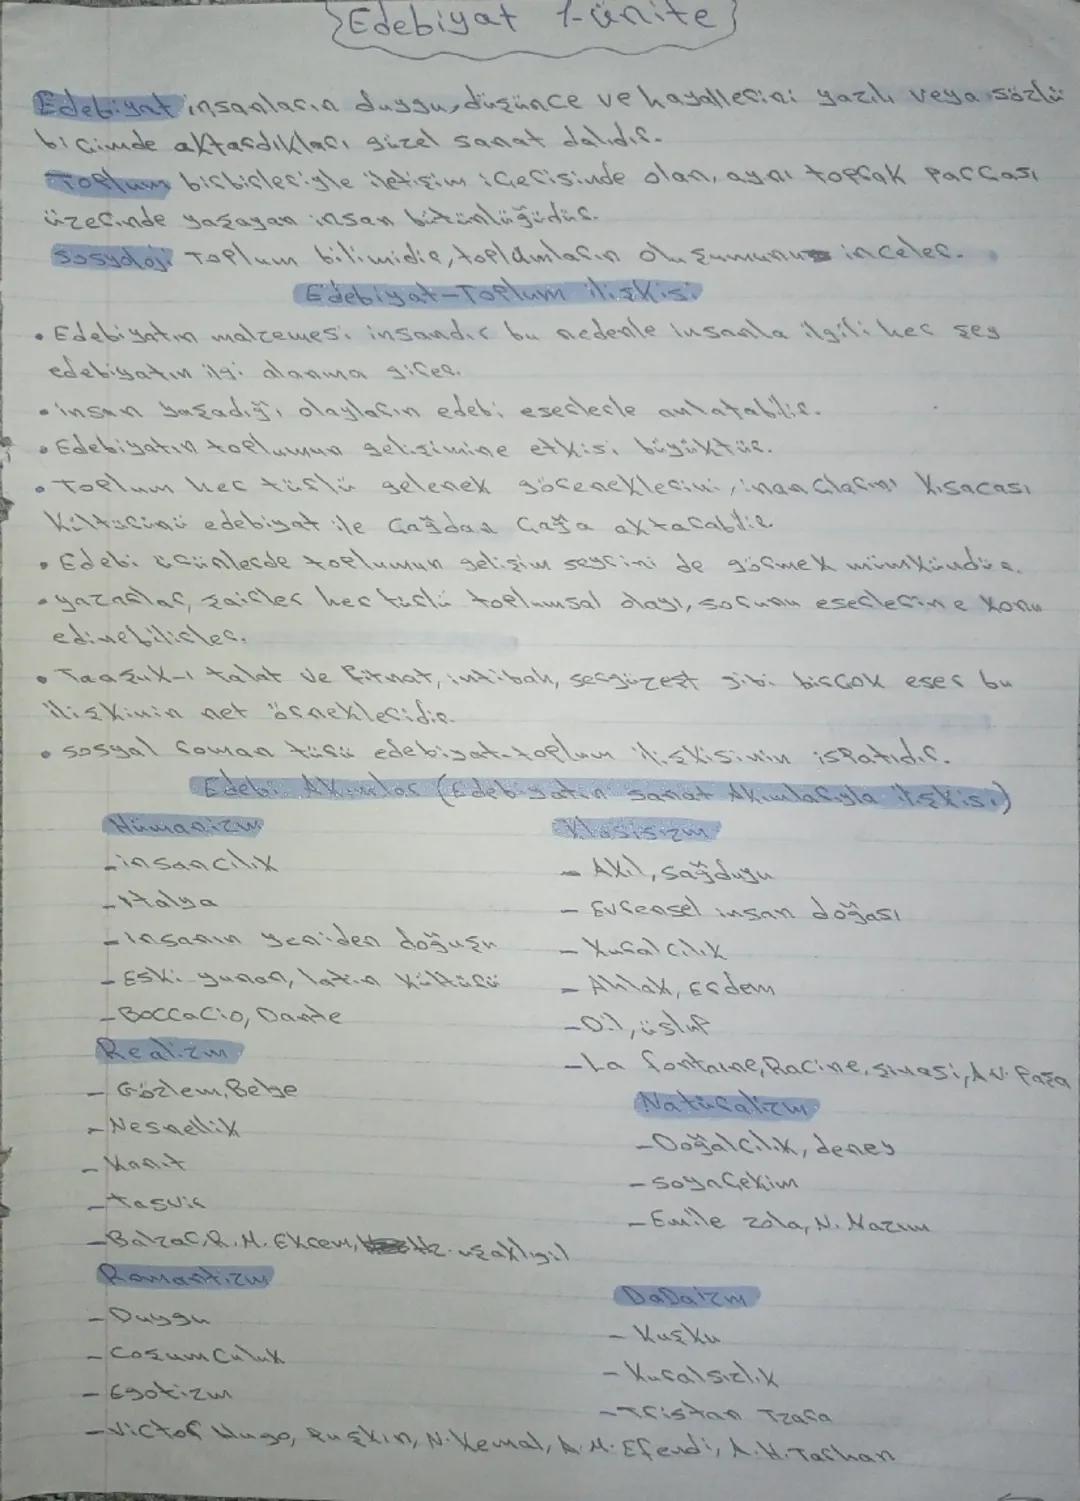 Edebiyat 1-ünite
Edebiyat insanların duygu, düşünce ve hayallerini yazılı veya sözlü
biçimde aktardıkları güzel sanat dalıdır.
Toplum birbirleriyle iletişim içerisinde olan, aynı toprak parçası
üzerinde yaşayan insan bütünlüğüdür.
Sosyoloji Toplum bilimidir, toplumların oluşumunu inceler.
Edebiyat-Toplum ilişkisi
• Edebiyatın malzemesi insandır bu nedenle insanla ilgili her şey
edebiyatın ilgi alanına girer.
• insan yaşadığı olayların edebi eserlerle anlatabilir.
• Edebiyatın toplumun gelişimine etkisi büyüktür.
• Toplum her türlü gelenek göreneklerini, inançlarını kısacası
kültürünü edebiyat ile çağdan çağa aktarabilir
• Edebi ürünlerde toplumun gelişim seyrini de görmek mümkündür.
• yazarlar, şairler her türlü toplumsal olayı, sorunu eserlerine konu
edinebilirler.
• Taaşuk-ı talat ve fitnat, intibah, sergüzeşt gibi birçok eser bu
ilişkinin net örnekleridir.
• sosyal roman türü edebiyat-toplum ilişkisinin ispatıdır.
Edebi Akımlar (Edebiyatın sanat Akımlarıyla ilişkisi)
Hümanizm
- insancılık
- italya
- insanın yeniden doğuşu
- Eski yunan, latin kültürü
- Boccacio, Dante
Klasisizm
- Akıl, sağduyu
- Evrensel insan doğası
- Kuralcılık
- Ahlak, Erdem
- Dil, üslup
- La fontaine, Racine, şinasi, A.V. Paşa
Realizm
- Gözlem, Belge
- Nesnellik
- Kanıt
- tasvir
- Balzac, R.M. Ekrem, Hz. uşaklıgil
Natüralizm
- Doğalcılık, deney
- soyaçekim
- Emile zola, N. Nazım
Romantizm
- Duygu
- Coşumculuk
- Egotizm
- Victor Hugo, Puşkin, N. Kemal, A.M. Efendi, A.H. Tarhan
DaDaizm
- Kuşku
- Kuralsızlık
- Tristan Tzara